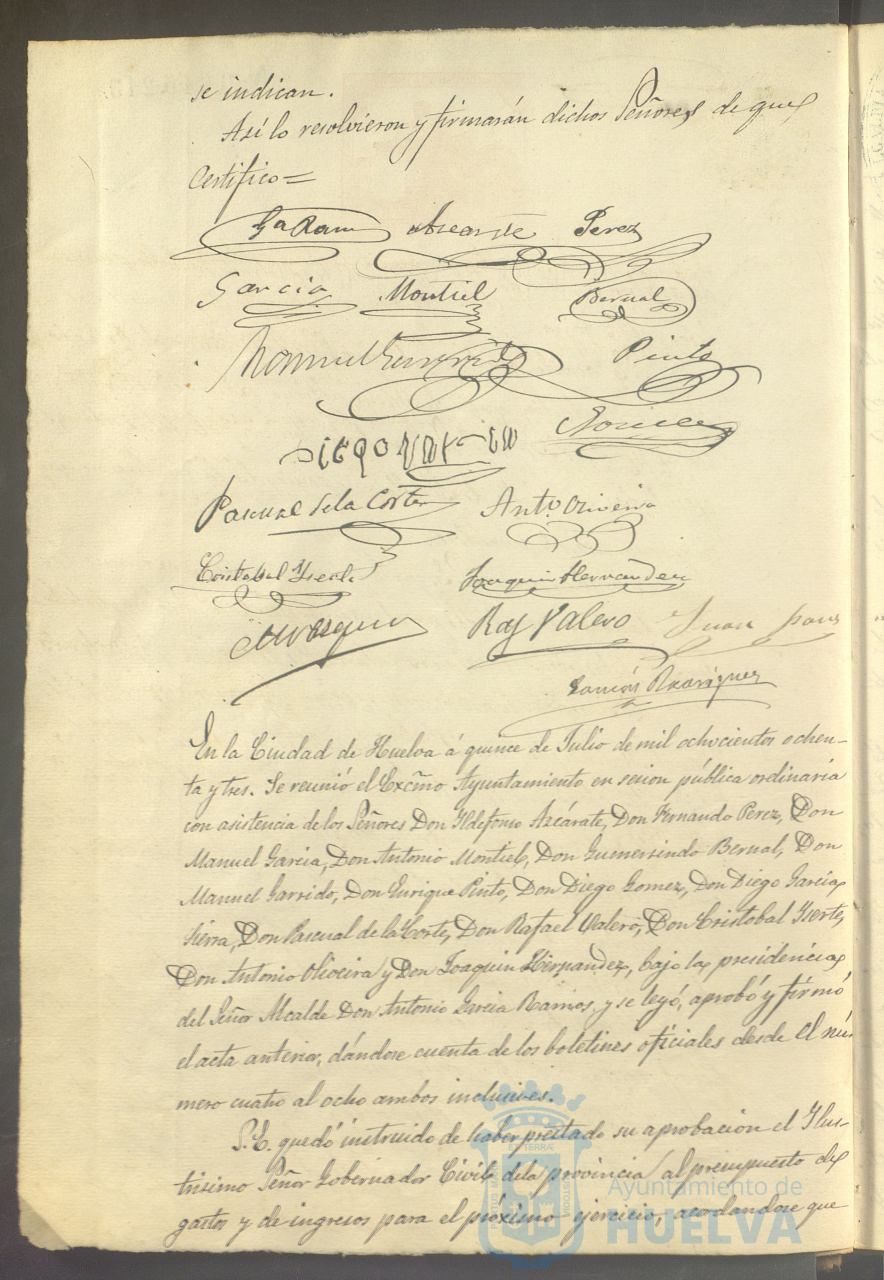 se indican.
Así lo resolvieron y firmarán dichos Señores de que
Certifico=
Ga Ram Azcarate Perez
Garcia Montiel Bernal
Manuel Garrido Pinto
Diego
Pascual de la Corte Anto Oliveira
Cristobal Yserte Joaquin Hernandez
M Vazquez Raf Valero Juan
Ramón Rodriguez
En la Ciudad de Huelva á quince de Julio de mil ochocientos ochen-
ta y tres. Se reunió el Excmo Ayuntamiento en sesion pública ordinaria
con asistencia de los Señores Don Yldefonso Azcárate, Don Fernando Perez, Don
Manuel Garcia, Don Antonio Montiel, Don Gumersindo Bernal, Don
Manuel Garrido, Don Enrique Pinto, Don Diego Gomez, Don Diego Garcia
Sierra, Don Pascual de la Corte, Don Rafael Valero, Don Cristobal Yserte,
Don Antonio Oliveira y Don Joaquin Hernandez, bajo la presidencia
del Señor Alcalde Don Antonio Garcia Ramos, y se leyó, aprobó y firmó
el acta anterior, dándose cuenta de los boletines oficiales desde el nú-
mero cuatro al ocho ambos inclusives.
S.E. quedó instruido de haber prestado su aprobación el Ylus-
trisimo Señor Gobernador Civil de la provincia al presupuesto de
gastos y de ingresos para el próximo ejercicio, acordandose que
Ayuntamiento de
HUELVA